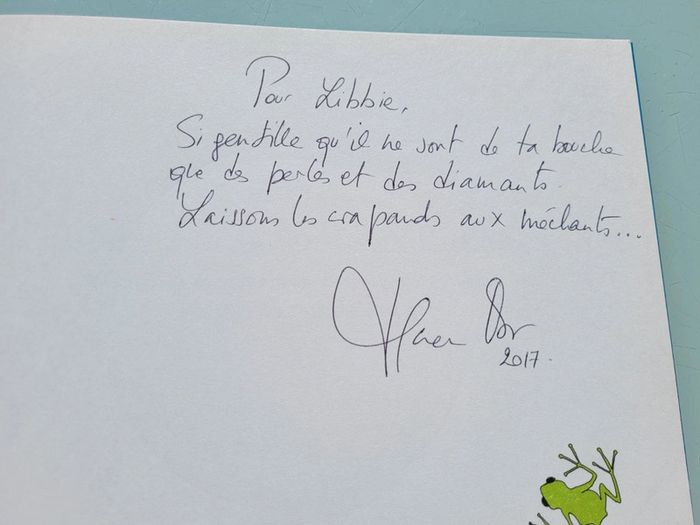 Pour Libbie,
Si gentille qu'il ne sort de ta bouche
que des perles et des diamants.
Laissons les crapauds aux méchants...
2017.